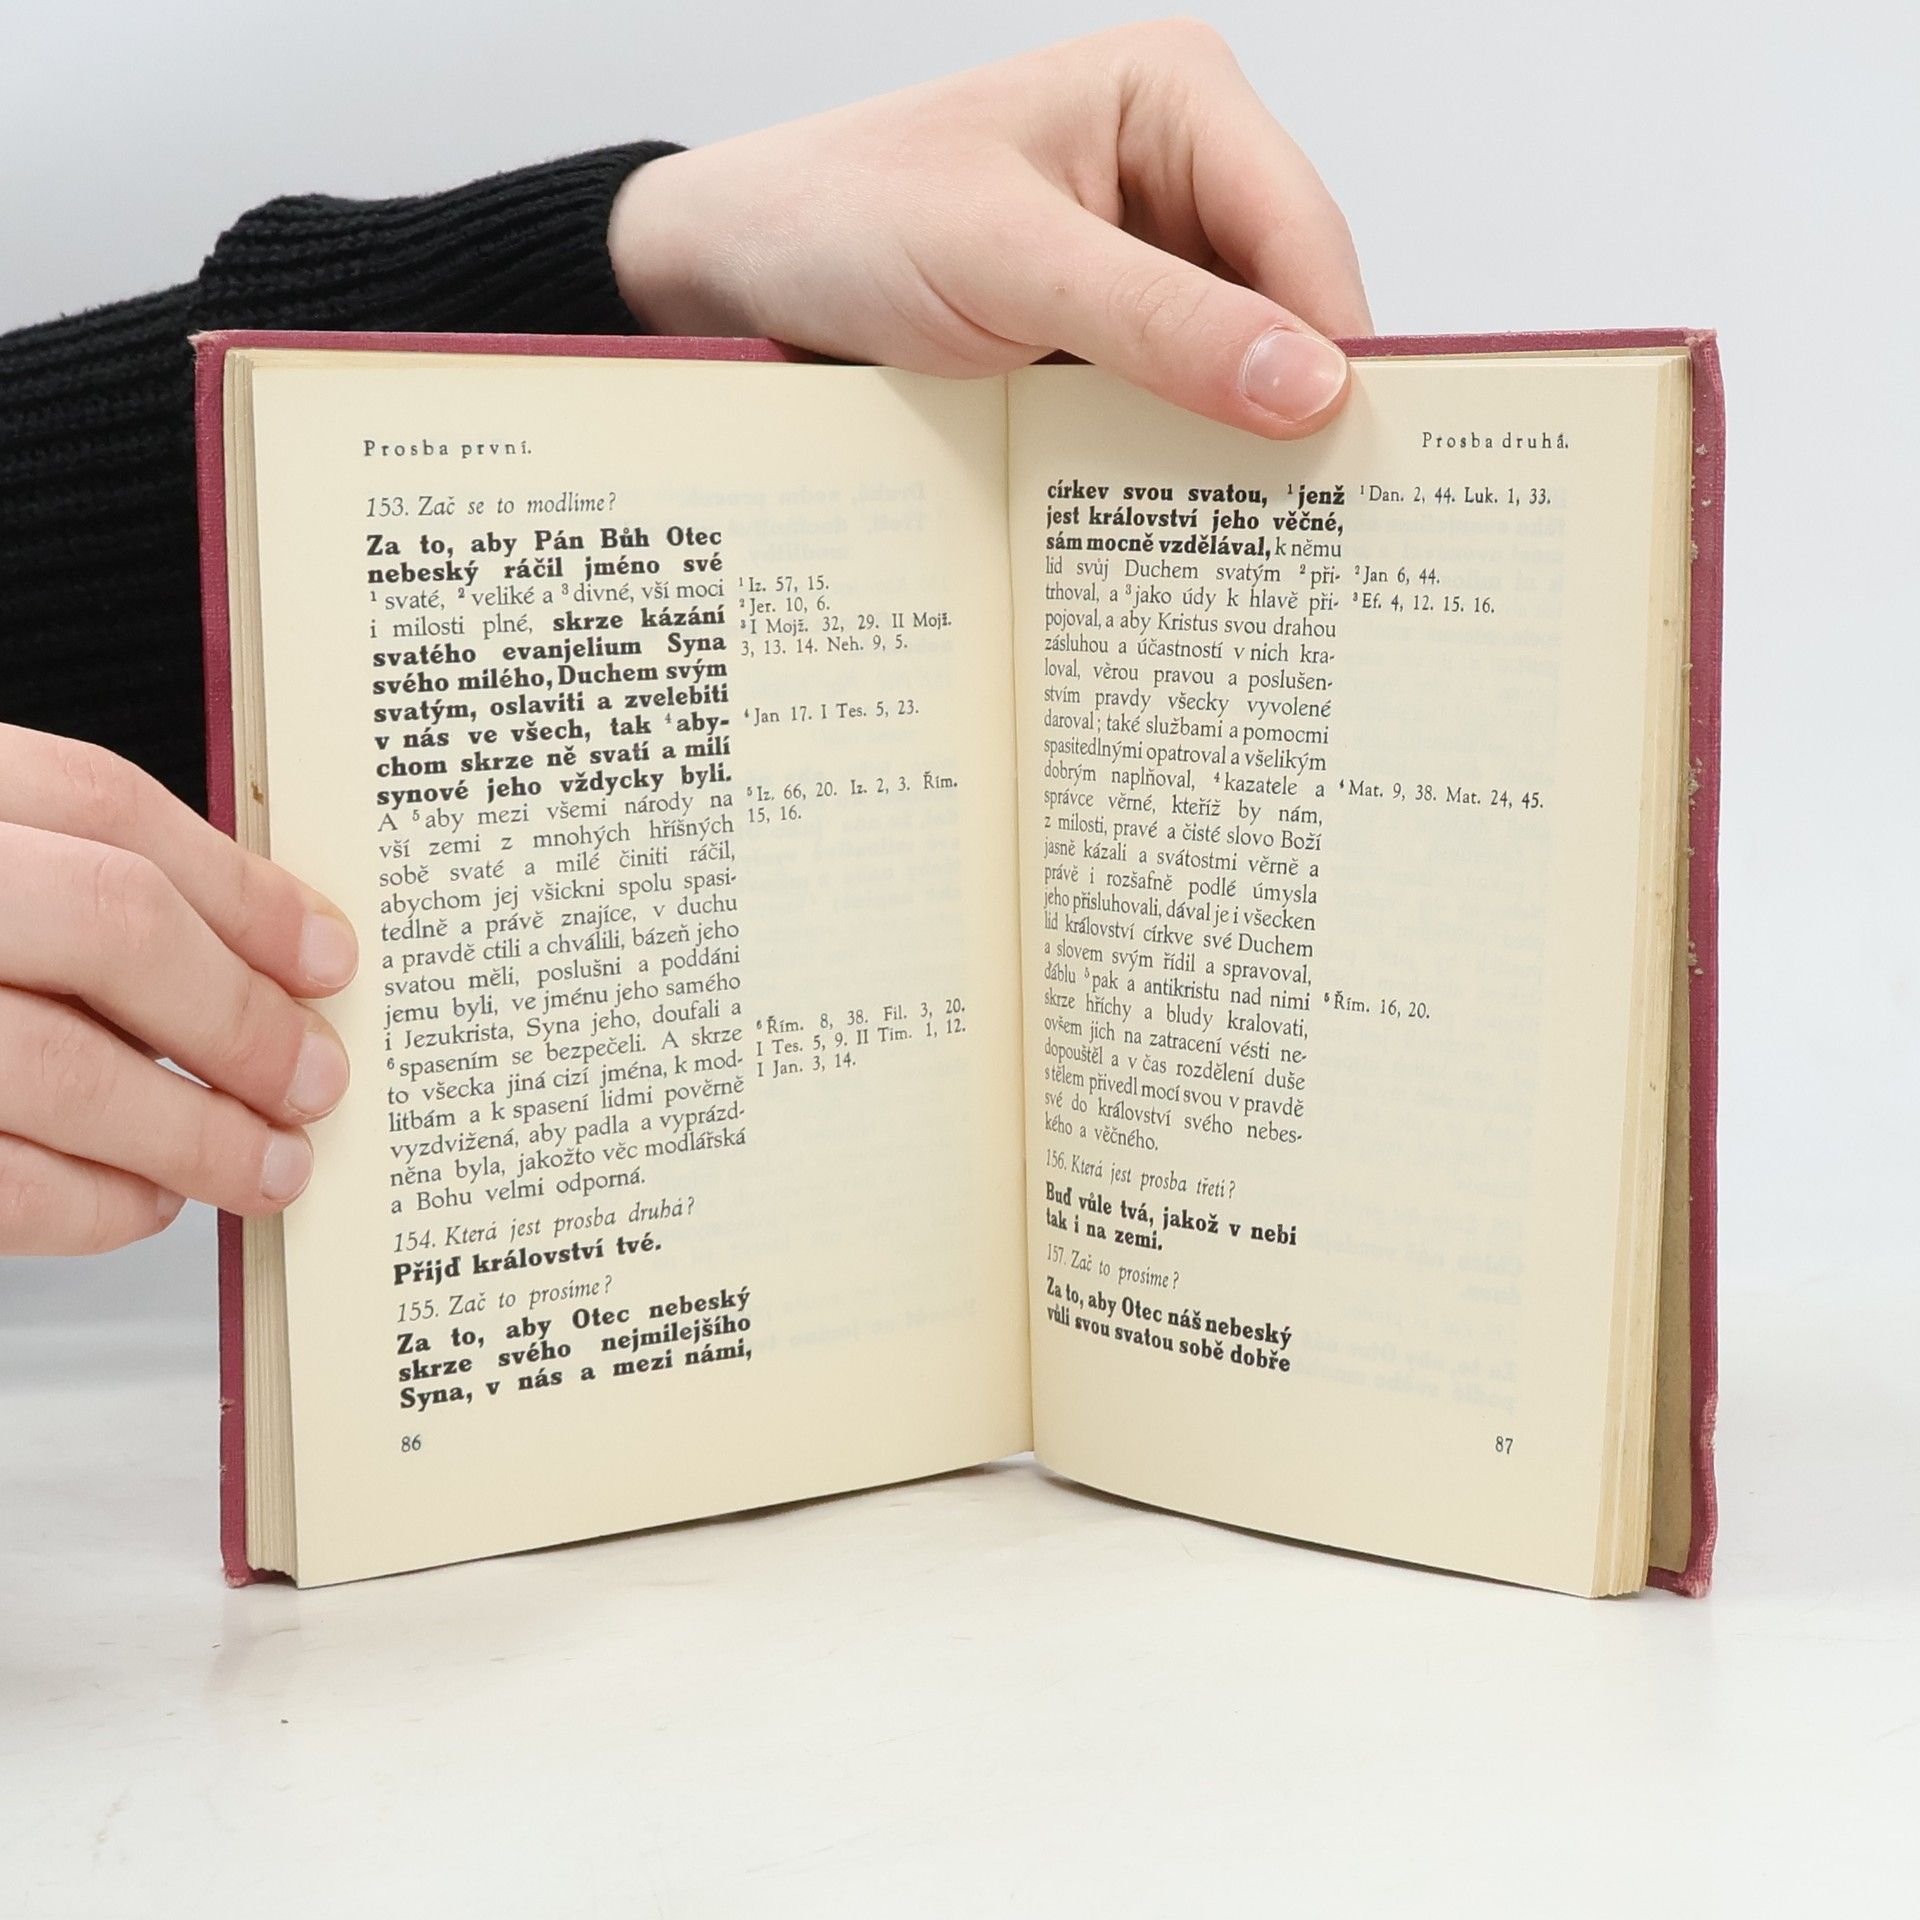 Prosba první.
153. Zač se to modlíme?
Za to, aby Pán Bůh Otec
nebeský ráčil jméno své
¹ svaté, ² veliké a ³ divné, vší moci
i milosti plné, skrze kázání
svatého evanjelium Syna
svého milého, Duchem svým
svatým, oslaviti a zvelebiti
v nás ve všech, tak ⁴ aby-
chom skrze ně svatí a milí
synové jeho vždycky byli.
A ⁵ aby mezi všemi národy na
vší zemi z mnohých hříšných
sobě svaté a milé činiti ráčil,
abychom jej všickni spolu spasi-
tedlně a právě znajíce, v duchu
a pravdě ctili a chválili, bázeň jeho
svatou měli, poslušni a poddáni
jemu byli, ve jménu jeho samého
i Jezukrista, Syna jeho, doufali a
⁶ spasením se bezpečeli. A skrze
to všecka jiná cizí jména, k mod-
litbám a k spasení lidmi pověrně
vyzdvižená, aby padla a vyprázd-
něna byla, jakožto věc modlářská
a Bohu velmi odporná.
154. Která jest prosba druhá?
Přijď království tvé.
155. Zač to prosíme?
Za to, aby Otec nebeský
skrze svého nejmilejšího
Syna, v nás a mezi námi,
¹ Iz. 57, 15.
² Jer. 10, 6.
³ I Mojž. 32, 29. II Mojž.
3, 13. 14. Neh. 9, 5.
⁴ Jan 17. I Tes. 5, 23.
⁵ Iz. 66, 20. Iz. 2, 3. Řím.
15, 16.
⁶ Řím. 8, 38. Fil. 3, 20.
I Tes. 5, 9. II Tim. 1, 12.
I Jan. 3, 14.
86
Prosba druhá.
církev svou svatou, ¹ jenž
jest království jeho věčné,
sám mocně vzdělával, k němu
lid svůj Duchem svatým ² při-
trhoval, a ³ jako údy k hlavě při-
pojoval, a aby Kristus svou drahou
zásluhou a účastností v nich kra-
loval, věrou pravou a poslušen-
stvím pravdy všecky vyvolené
daroval; také službami a pomocmi
spasitedlnými opatroval a všelikým
dobrým naplňoval, ⁴ kazatele a
správce věrné, kteříž by nám,
z milosti, pravé a čisté slovo Boží
jasně kázali a svátostmi věrně a
právě i rozšafně podlé úmysla
jeho přisluhovali, dával je i všecken
lid království církve své Duchem
a slovem svým řídil a spravoval,
ďáblu ⁵ pak a antikristu nad nimi
skrze hříchy a bludy kralovati,
ovšem jich na zatracení vésti ne-
dopouštěl a v čas rozdělení duše
s tělem přivedl mocí svou v pravdě
své do království svého nebes-
kého a věčného.
156. Která jest prosba třetí?
Buď vůle tvá, jakož v nebi
tak i na zemi.
157. Zač to prosíme?
Za to, aby Otec náš nebeský
vůli svou svatou sobě dobře
¹ Dan. 2, 44. Luk. 1, 33.
² Jan 6, 44.
³ Ef. 4, 12. 15. 16.
⁴ Mat. 9, 38. Mat. 24, 45.
⁵ Řím. 16, 20.
87